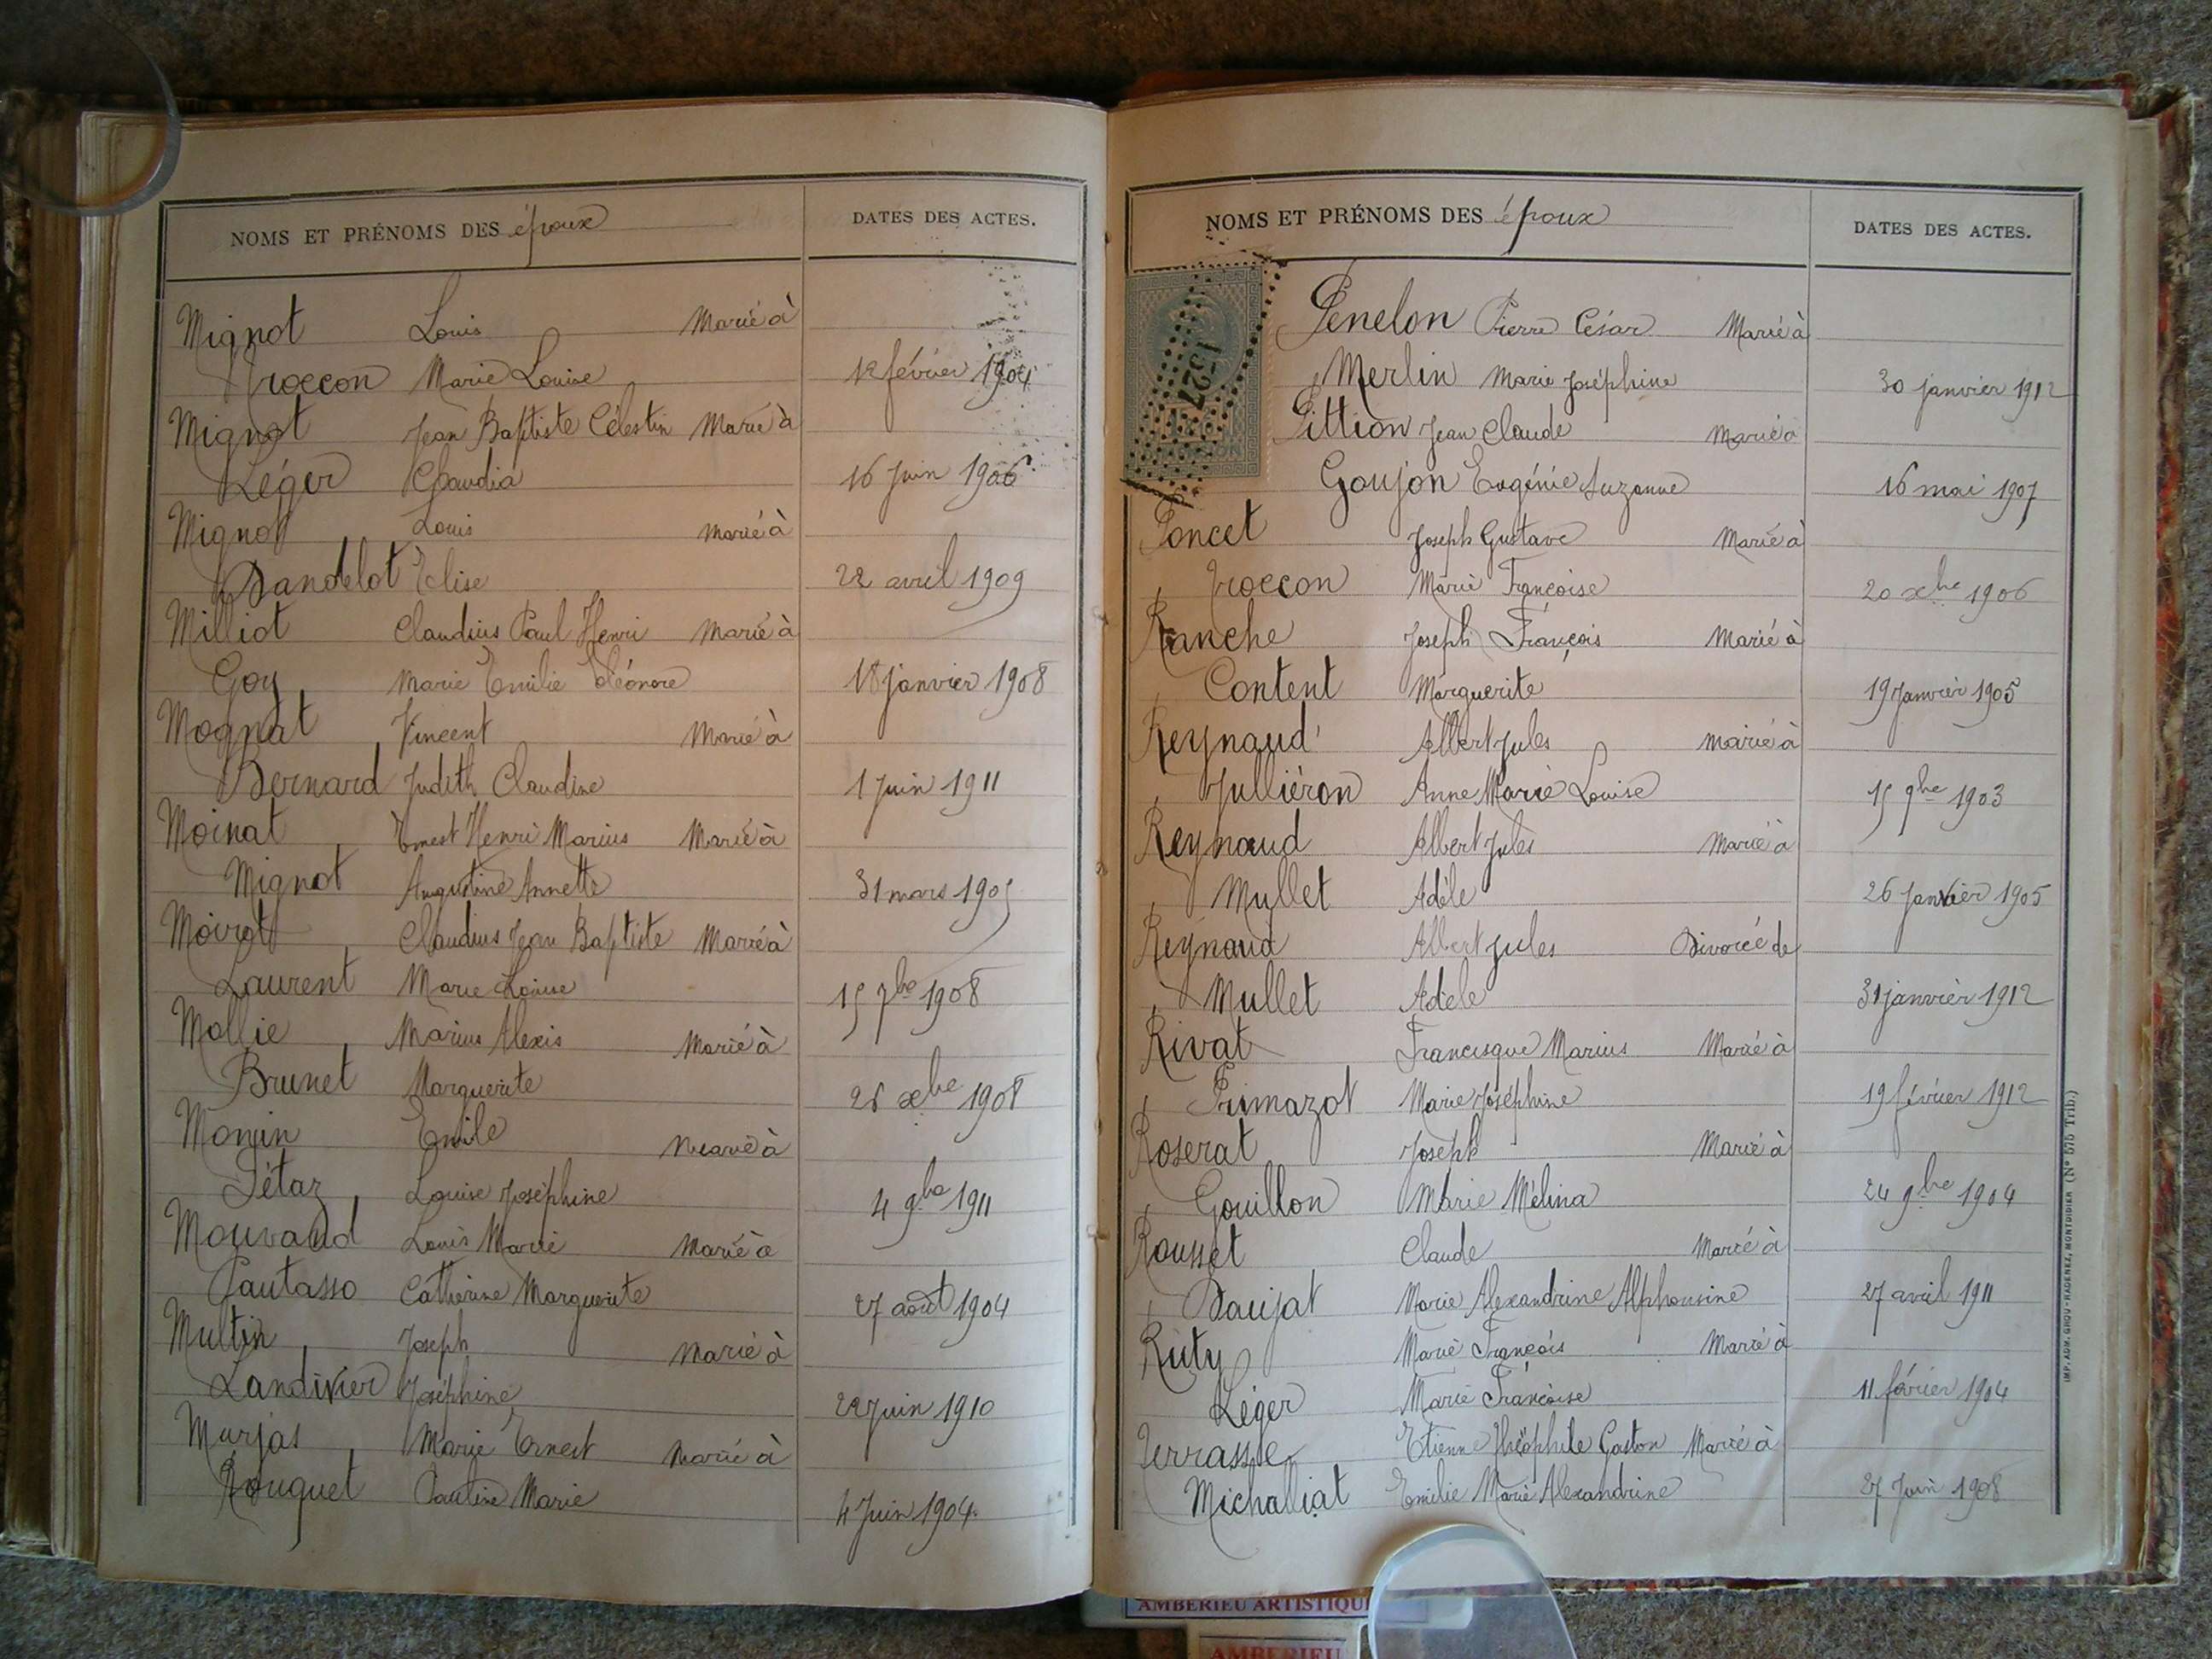 NOMS ET PRÉNOMS DES époux DATES DES ACTES.
Mignot Louis Marié à
Troccon Marie Louise 12 février 1904
Mignot Jean Baptiste Célestin Marié à
Léger Claudia 16 Juin 1906
Mignot Louis Marié à
Dandelot Elise 22 avril 1909
Milliot Claudius Paul Henri Marié à
Goy Marie Emilie Eléonore 18 janvier 1908
Mognat Vincent Marié à
Bernard Judith Claudine 1 Juin 1911
Moinat Ernest Henri Marius Marié à
Mignot Augustine Annette 31 mars 1905
Moirot Claudius Jean Baptiste Marié à
Laurent Marie Louise 15 7bre 1908
Mollie Marius Alexis Marié à
Brunet Marguerite 26 xbre 1908
Monin Emile Marié à
Pétaz Louise Joséphine 4 9bre 1911
Mouvaud Louis Marie Marié à
Pautasso Catherine Marguerite 27 août 1904
Multin Joseph Marié à
Landivier Joséphine 22 Juin 1910
Murjas Marie Ernest Marié à
Rouquet Pauline Marie 4 Juin 1904.
NOMS ET PRÉNOMS DES époux DATES DES ACTES.
Penelon Pierre César Marié à
Merlin Marie Joséphine 30 janvier 1912
Pittion Jean Claude Marié à
Goujon Eugénie Suzanne 16 mai 1907
Poncet Joseph Gustave Marié à
Troccon Marie Françoise 20 xbre 1906
Ranche Joseph François Marié à
Content Marguerite 19 Janvier 1905
Reynaud Albert Jules marié à
Julliéron Anne Marie Louise 15 9bre 1903
Reynaud Albert Jules Marié à
Mullet Adèle 26 Janvier 1905
Reynaud Albert Jules Divorcé de
Mullet Adèle 31 janvier 1912
Rivat Francisque Marius Marié à
Primazot Marie Joséphine 19 février 1912
Roserat Joseph Marié à
Gouillon Marie Mélina 24 9bre 1904
Rousset Claude Marié à
Daujat Marie Alexandrine Alphonsine 27 avril 1911
Ruty Marie François Marié à
Léger Marie Françoise 11 février 1904
Terrasse Etienne Théophile Gaston Marié à
Michalliat Emilie Marie Alexandrine 27 Juin 1908
IMP. ADM. GROU-RADENEZ, MONTDIDIER (N° 575 Trib.)
AMBERIEU ARTISTIQU
AMBERIEU